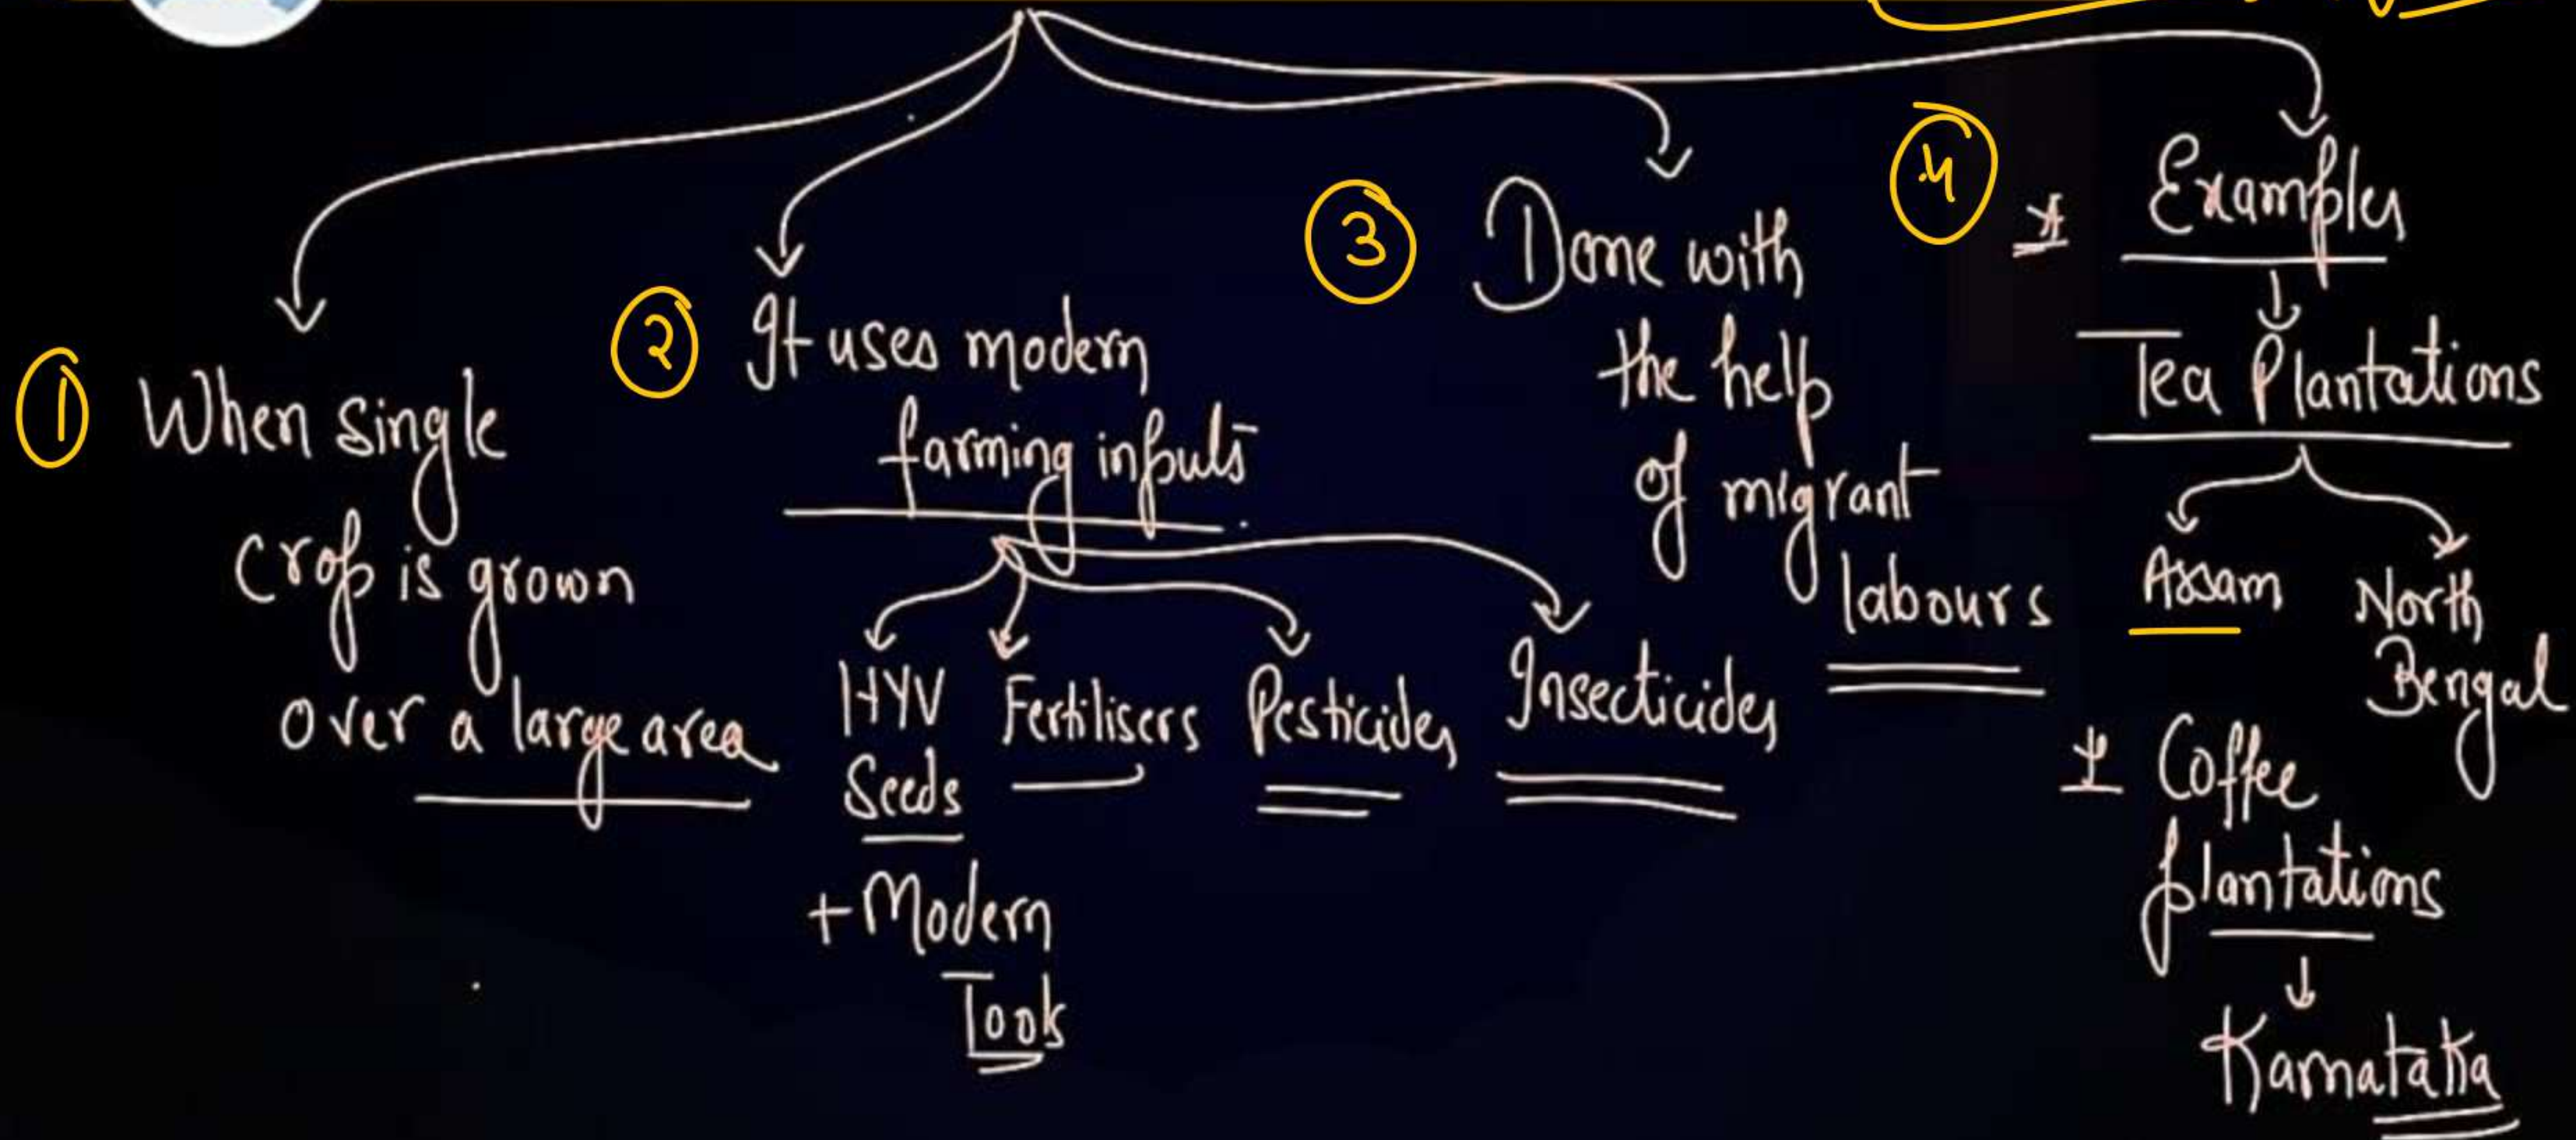 ① When single
crop is grown
over a large area
② It uses modern
farming inputs
HYV
Seeds
+ Modern
Tools
Fertilisers
Pesticides
Insecticides
③ Done with
the help
of migrant
labours
④ * Examples
Tea Plantations
Assam
North
Bengal
* Coffee
plantations
Karnataka